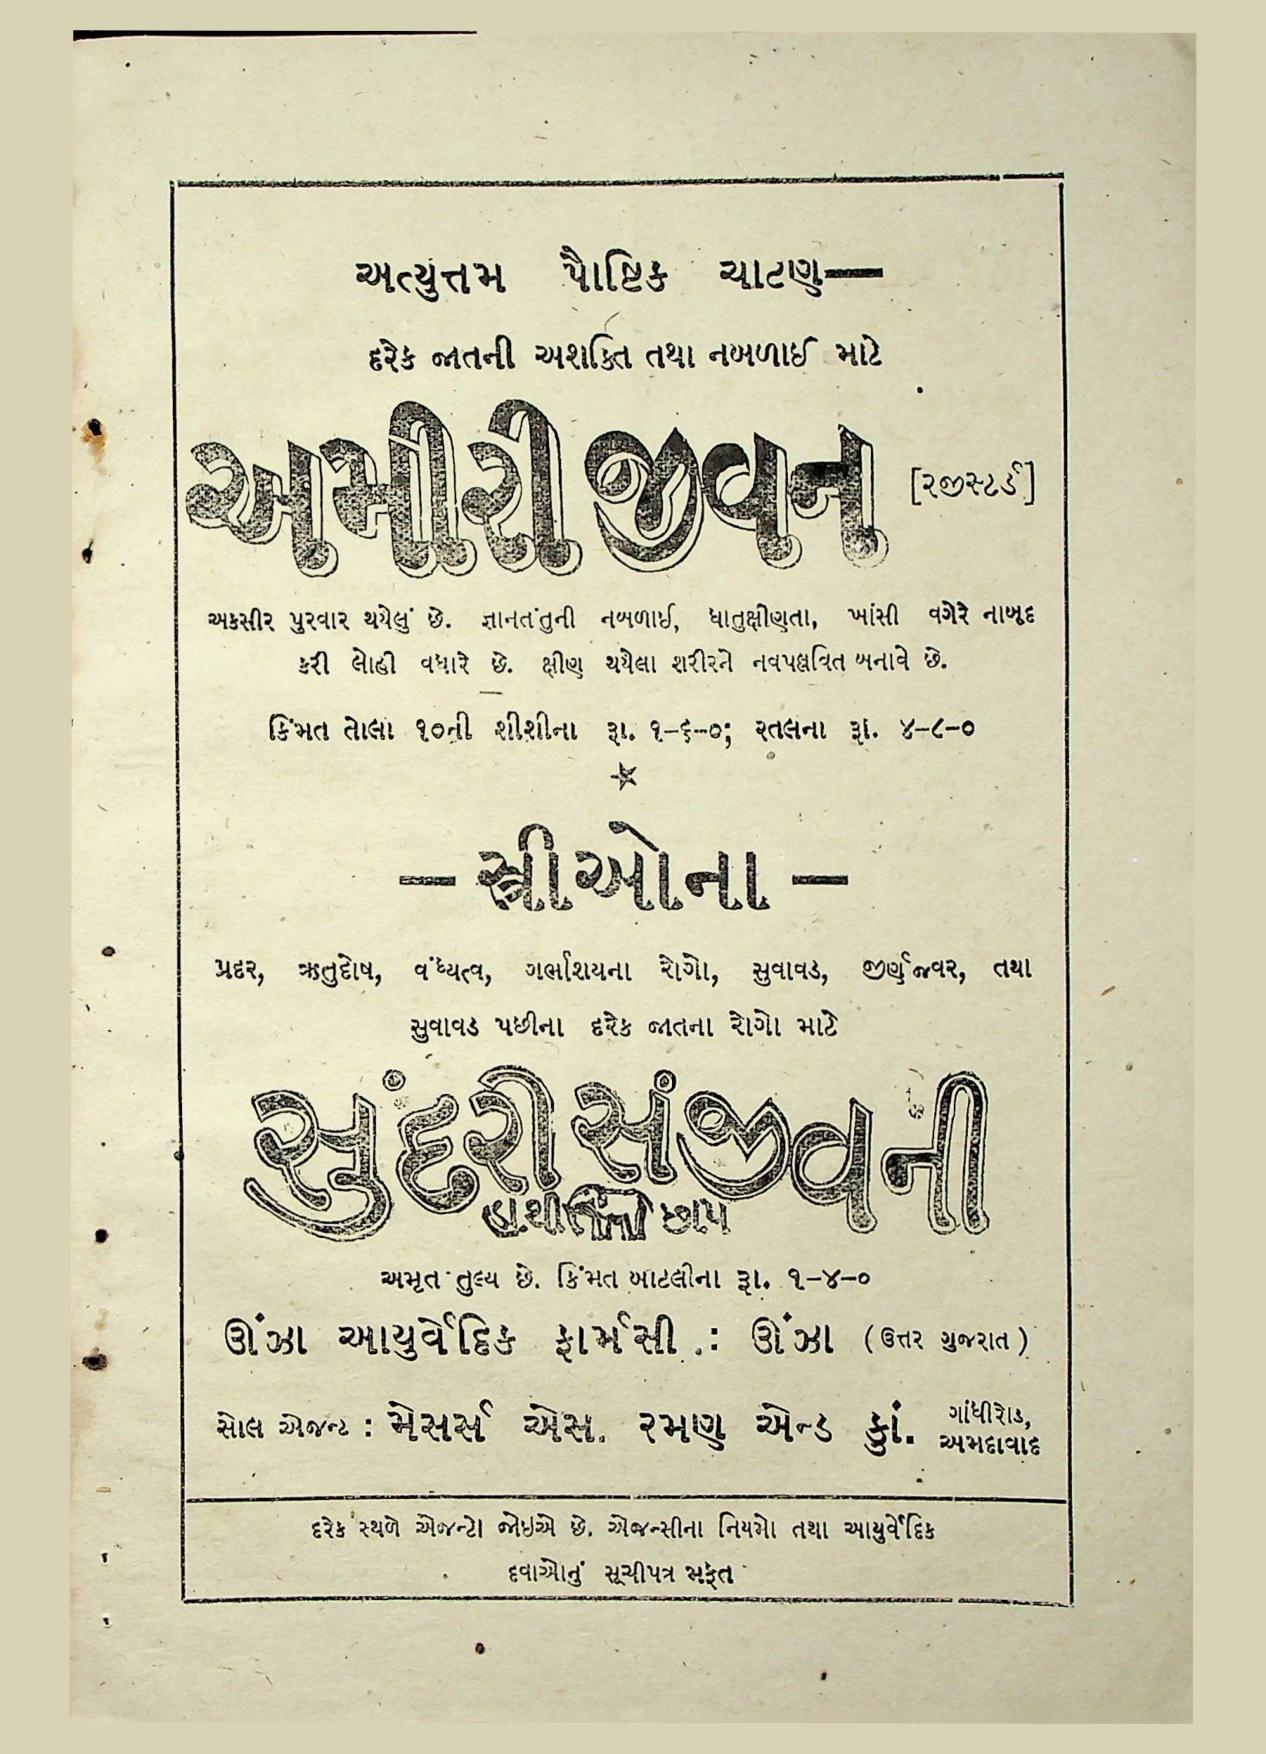 અત્યુત્તમ પૌષ્ટિક ચાટણ—
દરેક જાતની અશક્તિ તથા નબળાઈ માટે
અમીરી જીવન [રજીસ્ટર્ડ]
અકસીર પુરવાર થયેલું છે. જ્ઞાનતંતુની નબળાઈ, ધાતુક્ષીણતા, ખાંસી વગેરે નાબૂદ
કરી લોહી વધારે છે. ક્ષીણ થયેલા શરીરને નવપલ્લવિત બનાવે છે.
કિંમત તોલા ૧૦ની શીશીના રૂા. ૧-૬-૦; રતલના રૂા. ૪-૮-૦
— સ્ત્રીઓના —
પ્રદર, ઋતુદોષ, વંધ્યત્વ, ગર્ભાશયના રોગો, સુવાવડ, જીર્ણજ્વર, તથા
સુવાવડ પછીના દરેક જાતના રોગો માટે
સુંદરી સંજીવની
હાથી છાપ
અમૃત તુલ્ય છે. કિંમત બાટલીના રૂા. ૧-૪-૦
ઊંઝા આયુર્વેદિક ફાર્મસી : ઊંઝા (ઉત્તર ગુજરાત)
સોલ એજન્ટ : મેસર્સ એસ. રમણ એન્ડ કું. ગાંધીરોડ, અમદાવાદ
દરેક સ્થળે એજન્ટો જોઇએ છે. એજન્સીના નિયમો તથા આયુર્વેદિક
દવાઓનું સૂચીપત્ર મફત